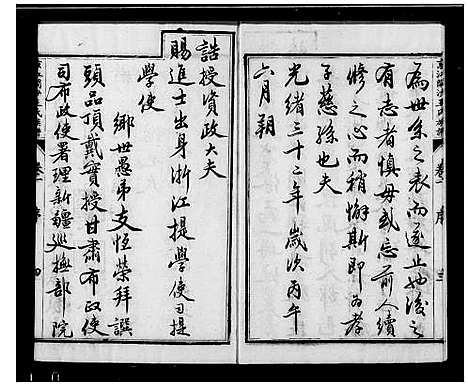 為世系之表而遂止也後之
有志者慎毋或忘前人續
修之心而稍懈斯即為孝
子慈孫也夫
光緒三十二年歲次丙午
六月朔
誥授資政大夫
賜進士出身浙江提學使司提
學使
鄉世愚弟支恆榮拜譔
頭品頂戴實授甘肅布政使
司布政使署理新疆巡撫部院
卷一 序 三
卷一 序 四